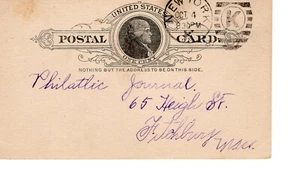 UNITED STATES
NEW YORK
OCT 4
30PM
K
POSTAL CARD.
ONE CENT
NOTHING BUT THE ADDRESS TO BE ON THIS SIDE.
Philatlic Journal,
65 Heigh St.
Fitchburg
Mass.